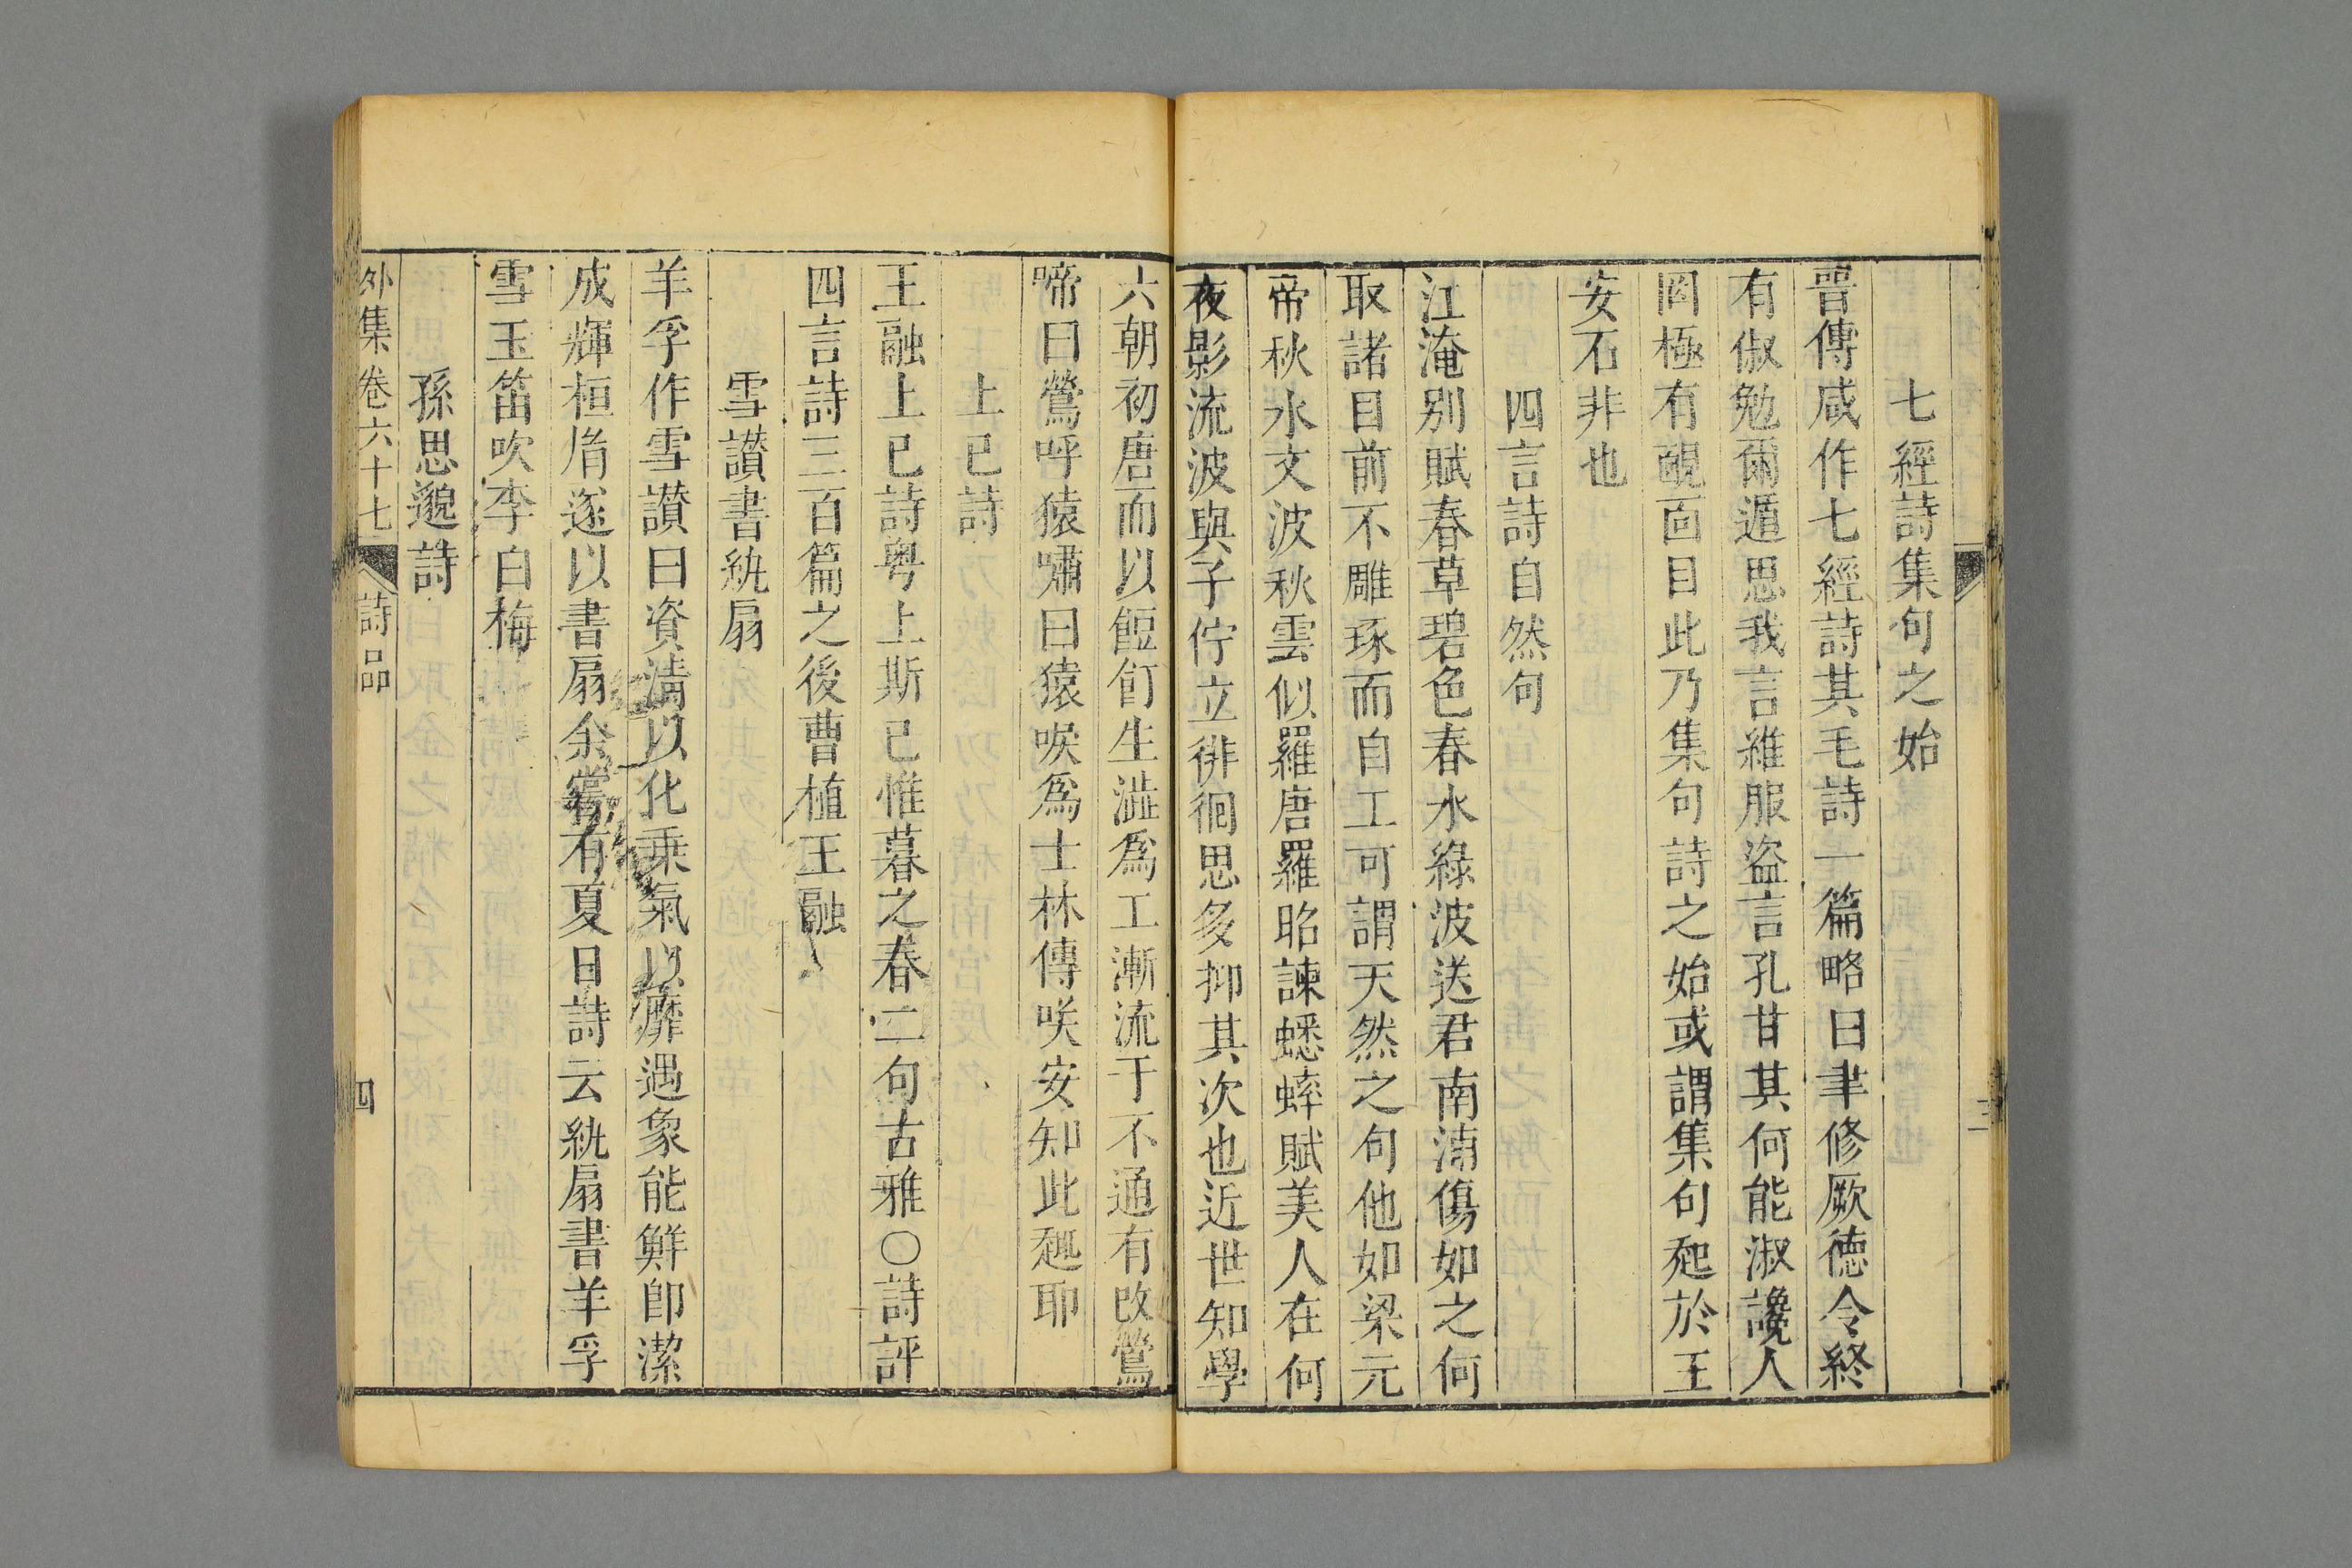 七經詩集句之始
晉傅咸作七經詩其毛詩一篇略曰聿修厥德令終
有俶勉爾遁思我言維服盜言孔甘其何能淑讒人
罔極有靦面目此乃集句詩之始或謂集句起於王
安石非也
四言詩自然句
江淹别賦春草碧色春水綠波送君南浦傷如之何
取諸目前不雕琢而自工可謂天然之句他如梁元
帝秋水文波秋雲似羅唐羅昭諫蟋蟀賦美人在何
夜影流波與子佇立徘徊思多抑其次也近世知學
六朝初唐而以餖飣生澁為工漸流于不通有改鶯
啼曰鶯呼猿嘯曰猿唳為士林傳咲安知此趣耶
上巳詩
王融上巳詩粤上斯巳惟暮之春二句古雅〇詩評
四言詩三百篇之後曹植王融
雪讃書紈扇
羊孚作雪讃曰資清以化乗氣以霏遇象能鮮卽潔
成輝桓脩遂以書扇余嘗有夏日詩云紈扇書羊孚
雪玉笛吹李白梅
孫思邈詩
外集卷六十七
詩品
四
三